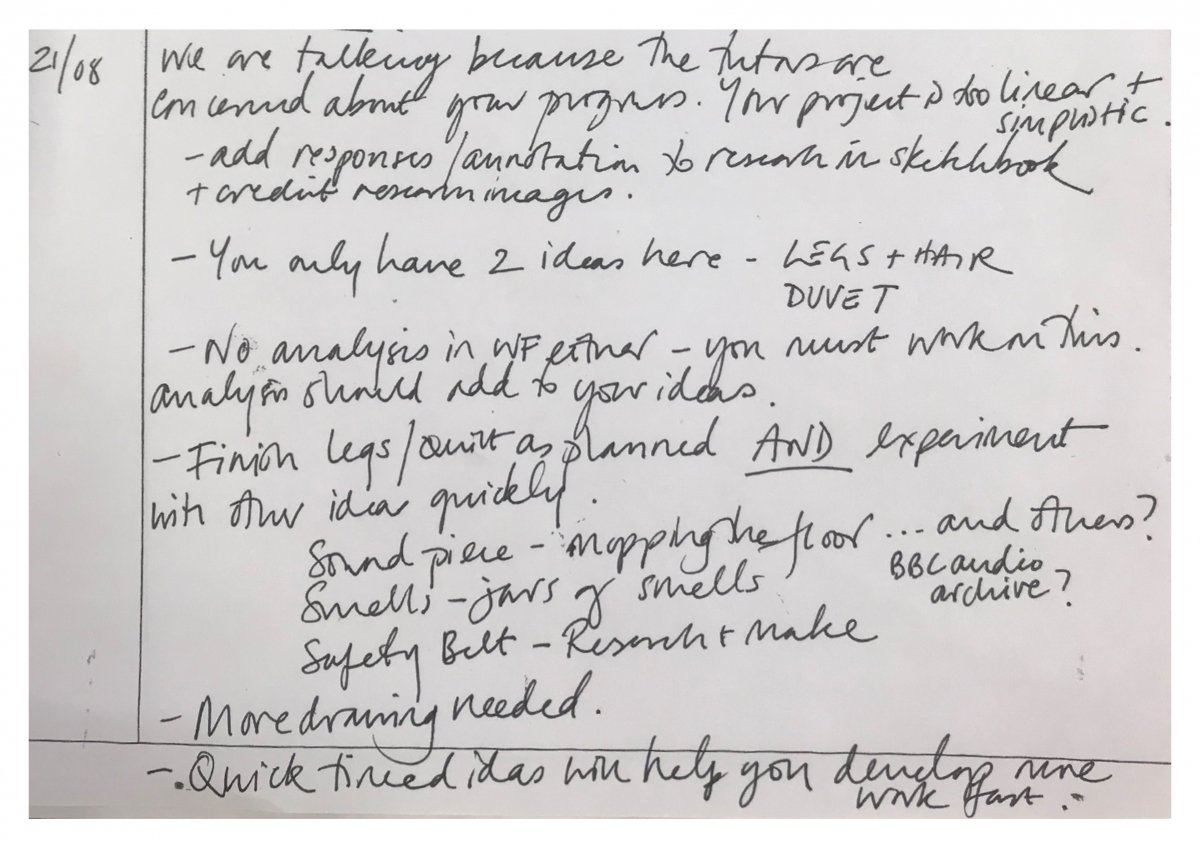 21/08 We are talking because the tutors are
concerned about your progress. Your project is too linear +
simplistic.
- add responses/annotation to research in sketchbook
+ credit research images.
- You only have 2 ideas here - LEGS + HAIR
DUVET
- No analysis in WF either - you must work on this.
analysis should add to your ideas.
- Finish legs/Quilt as planned AND experiment
with other ideas quickly.
Sound piece - mopping the floor ... and others?
BBC audio
archive?
Smells - jars of smells
Safety Belt - Research + make
- More drawing needed.
- Quick timed ideas will help you develop more
work fast.